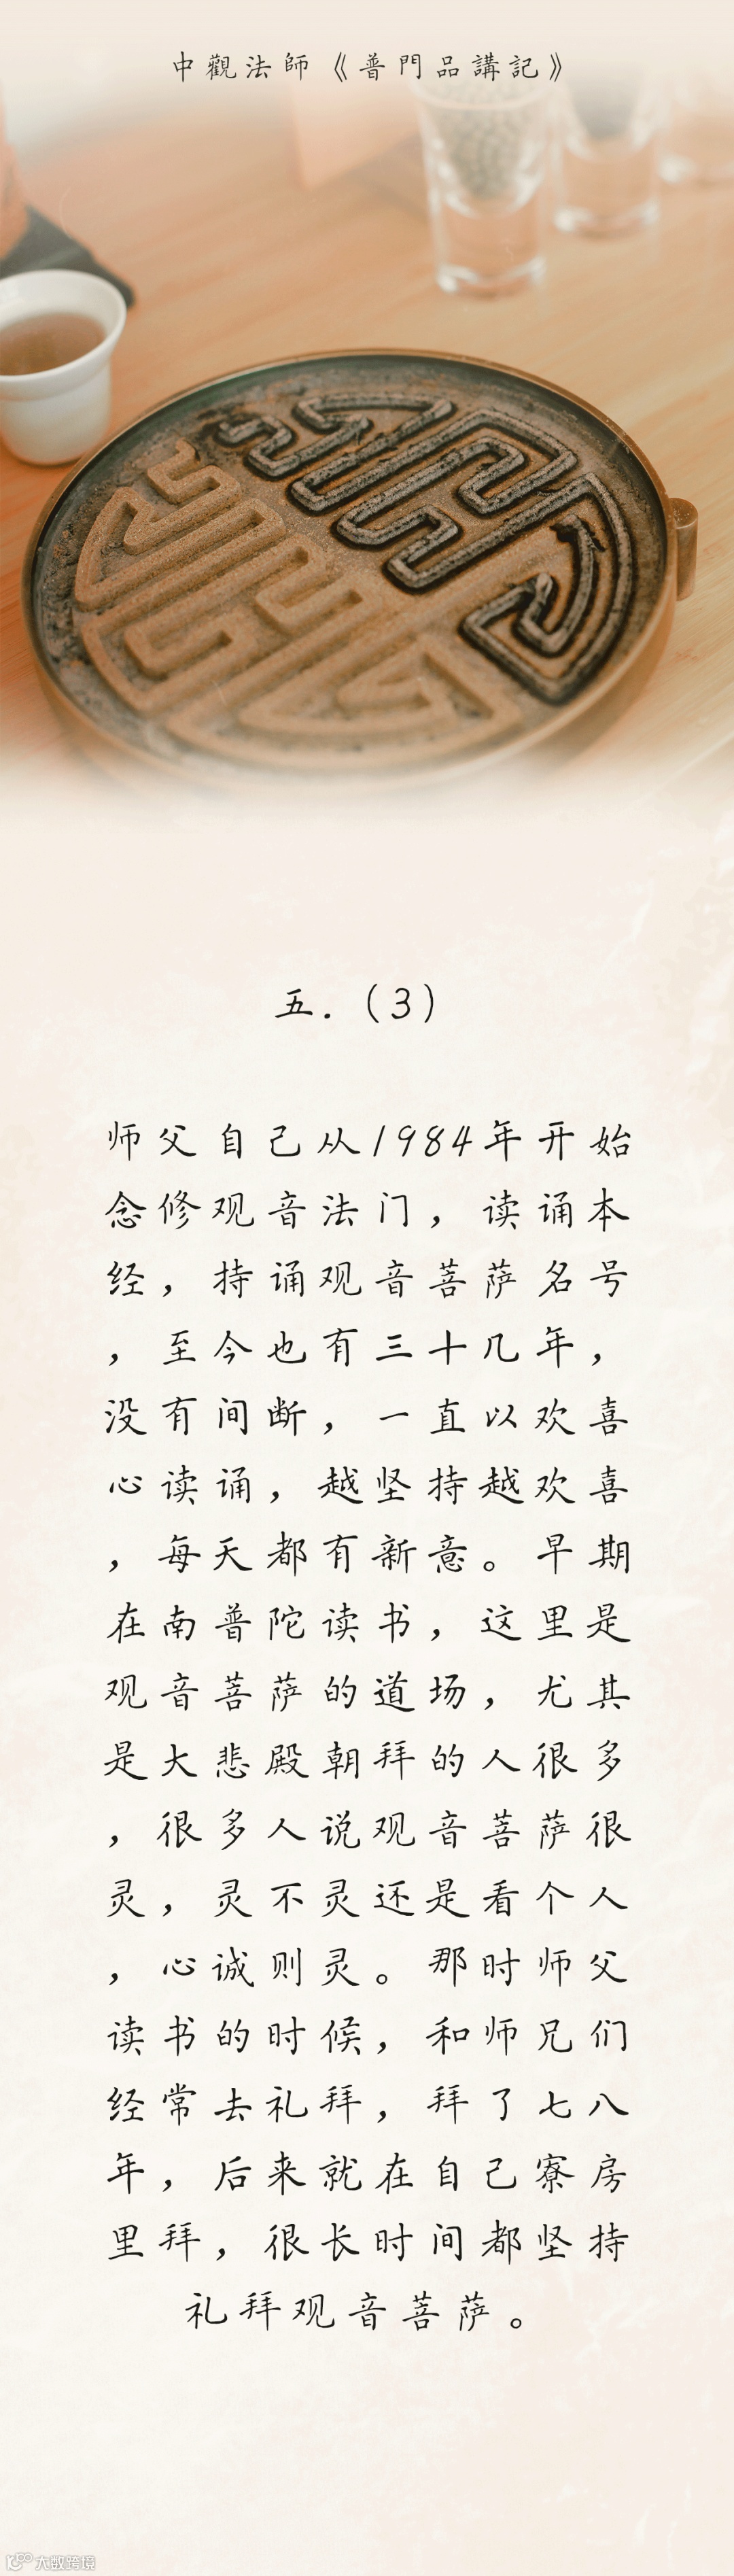 中觀法師《普門品講記》
五.(3)
师父自己从1984年开始
念修观音法门，读诵本
经，持诵观音菩萨名号
，至今也有三十几年，
没有间断，一直以欢喜
心读诵，越坚持越欢喜
，每天都有新意。早期
在南普陀读书，这里是
观音菩萨的道场，尤其
是大悲殿朝拜的人很多
，很多人说观音菩萨很
灵，灵不灵还是看个人
，心诚则灵。那时师父
读书的时候，和师兄们
经常去礼拜，拜了七八
年，后来就在自己寮房
里拜，很长时间都坚持
礼拜观音菩萨。
大数跨境